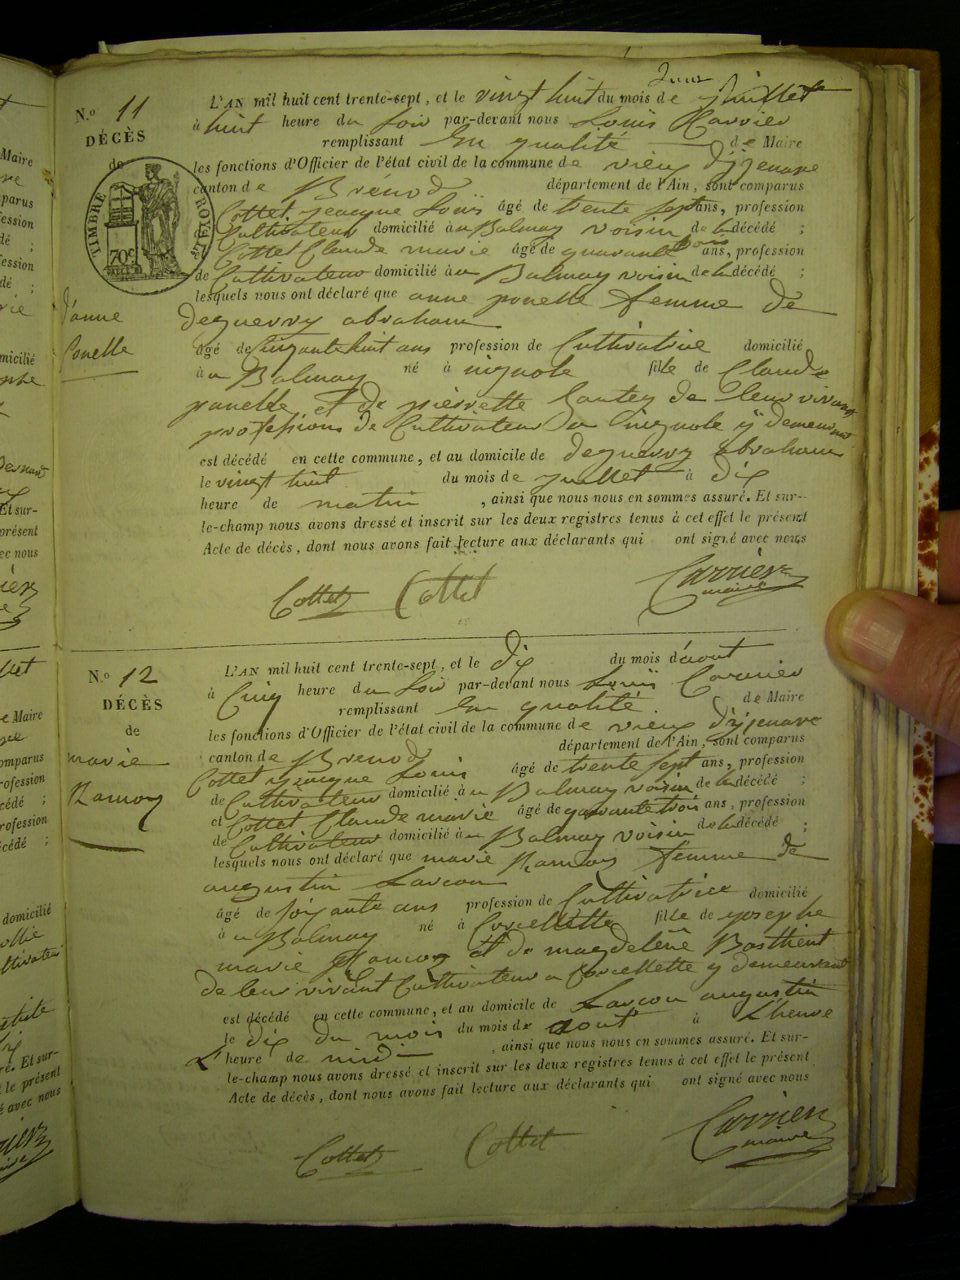 N.o 11
DÉCÈS
de
d'anne
Ponelle
TIMBRE ROYAL
70c
L'AN mil huit cent trente-sept, et le vingt huit du mois de juillet
à huit heure du soir par-devant nous Louis Carrier
remplissant en qualité de Maire
les fonctions d'Officier de l'état civil de la commune de vieu d'izenave
canton de Brénod département de l'Ain, sont comparus
Cottet jeacque Louis âgé de trente sept ans, profession
Cultivateur domicilié au Balmay voisin de la décédé ;
Cottet Claude marie âgé de quarante trois ans, profession
de Cultivateur domicilié au Balmay voisin de la décédé ;
lesquels nous ont déclaré que anne ponelle femme de
deguerry abraham
âgé de Cinquante huit ans profession de Cultivatrice domicilié
à u Balmay né à fille de Claude
ponelle et de pierrette de leur vivant
profession de Cultivateur a y demeurant
est décédé en cette commune, et au domicile de deguerry abraham
le vingt huit du mois de juillet à dix
heure de matin , ainsi que nous nous en sommes assuré. Et sur-
le-champ nous avons dressé et inscrit sur les deux registres tenus à cet effet le présent
Acte de décès, dont nous avons fait lecture aux déclarants qui ont signé avec nous
Cottet Cottet Carrier
maire
N.o 12
DÉCÈS
de
marie
Ramoz
L'AN mil huit cent trente-sept, et le dix du mois d'aout
à Cinq heure du soir par-devant nous Louis Carrier
remplissant en qualité de Maire
les fonctions d'Officier de l'état civil de la commune de vieu d'izenave
canton de Brenod département de l'Ain, sont comparus
Cottet jeacque Louis âgé de trente sept ans, profession
de Cultivateur domicilié au Balmay voisin de la décédé ;
et Cottet Claude marie âgé de quarante trois ans, profession
de Cultivateur domicilié au Balmay voisin de la décédé ;
lesquels nous ont déclaré que marie Ramoz femme de
augustin Larcon
âgé de soixante ans profession de Cultivatrice domicilié
à u Balmay né à Corcellette fille de yosephe
marie Ramoz et de magdeleine Basthient
de leur vivant Cultivateur a Corcellette y demeurant
est décédé en cette commune, et au domicile de Larcon augustin
le dix du mois du mois de aout à L'heure
L' heure de midi , ainsi que nous nous en sommes assuré. Et sur-
le-champ nous avons dressé et inscrit sur les deux registres tenus à cet effet le présent
Acte de décès, dont nous avons fait lecture aux déclarants qui ont signé avec nous
Cottet Cottet Carrier
maire